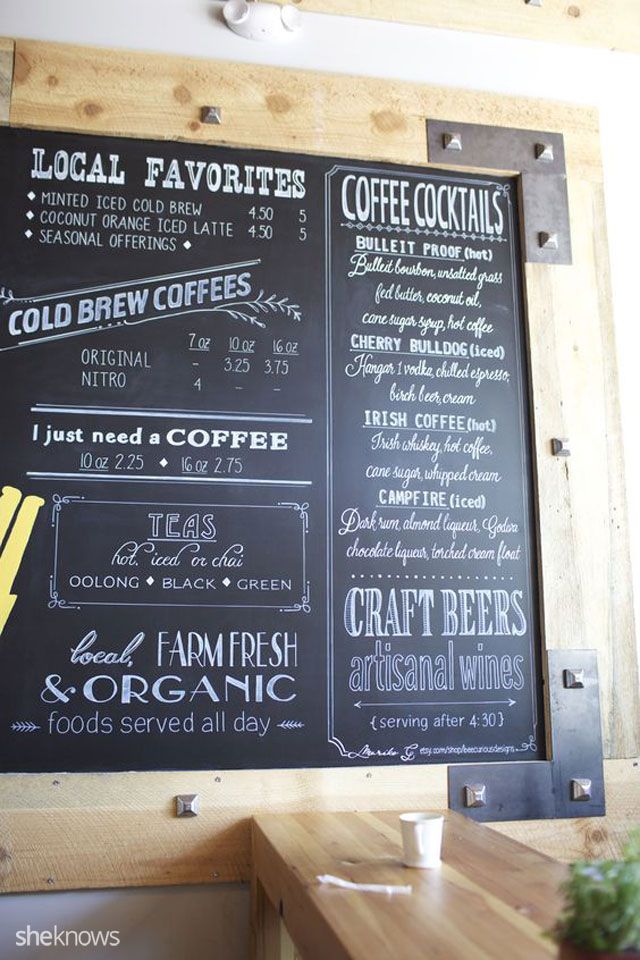 LOCAL FAVORITES
◆ MINTED ICED COLD BREW 4.50 5
◆ COCONUT ORANGE ICED LATTE 4.50 5
◆ SEASONAL OFFERINGS ◆
COLD BREW COFFEES
7 oz 10 oz 16 oz
ORIGINAL - 3.25 3.75
NITRO 4 - -
I just need a COFFEE
10 oz 2.25 ◆ 16 oz 2.75
TEAS
hot, iced or chai
OOLONG ◆ BLACK ◆ GREEN
local, FARM FRESH
& ORGANIC
foods served all day
COFFEE COCKTAILS
BULLEIT PROOF (hot)
Bulleit bourbon, unsalted grass
fed butter, coconut oil,
cane sugar syrup, hot coffee
CHERRY BULLDOG (iced)
Hangar 1 vodka, chilled espresso,
birch beer, cream
IRISH COFFEE (hot)
Irish whiskey, hot coffee,
cane sugar, whipped cream
CAMPFIRE (iced)
Dark rum, almond liqueur, Godiva
chocolate liqueur, torched cream float
CRAFT BEERS
artisanal wines
{serving after 4:30}
Mariko G. etsy.com/shop/beecuriousdesigns
sheknows